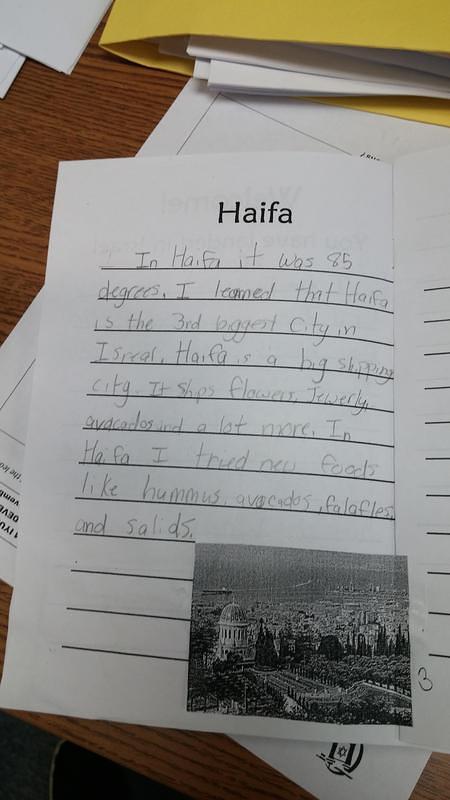 Haifa
In Haifa it was 85
degrees. I learned that Haifa
is the 3rd biggest City in
Isreal. Haifa is a big shipping
city. It ships flowers, Jewerly,
avacados and a lot more. In
Haifa I tried new foods
like hummus, avocados, falafles,
and salids.
3